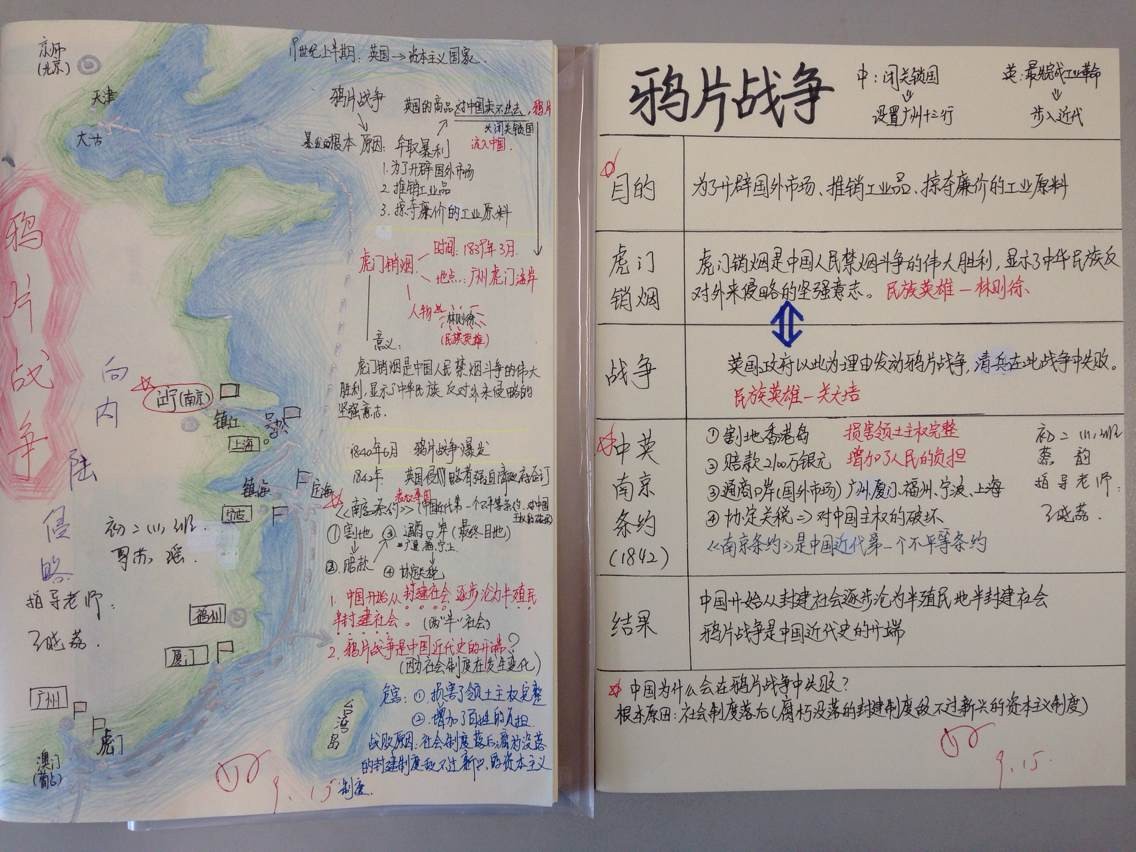 京师
(北京)
天津
大古
鸦片战争
向内陆侵略
初二(1)班
指导老师:
王晓荔
江宁(南京)
镇江
吴淞
上海
镇海
定海
宁波
福州
厦门
广州
虎门
澳门
(葡占)
台湾岛
19世纪上半期: 英国→资本主义国家
鸦片战争
英国的商品对中国卖不出去, 鸦片
闭关锁国
流入中国.
根本原因: 牟取暴利
1.为了开辟国外市场
2.推销工业品
3.掠夺廉价的工业原料
虎门销烟
时间: 1839年3月.
地点: 广州虎门海岸
人物
林则徐
(民族英雄)
意义:
虎门销烟是中国人民禁烟斗争的伟大
胜利,显示了中华民族反对外来侵略的
坚强意志.
1840年6月 鸦片战争爆发
1842年
《南京条约》(中国近代第一个不平等条约
①割地 ③通商口岸(最终目地)
②赔款 ④协定关税
1.中国开始从封建社会逐步沦为半殖民
半封建社会。(两"半"社会)
2.鸦片战争是中国近代史的开端?
(因为社会制度在发生变化)
危害: ①损害了领土主权完整
②增加了百姓的负担
战败原因:社会制度落后,
的封建制度敌不过新 的资本主义
制度.
9.15
鸦片战争
中:闭关锁国
⇓
设置广州十三行
英:最先完成工业革命
⇓
步入近代
目的
为了开辟国外市场、推销工业品、掠夺廉价的工业原料
虎门
销烟
虎门销烟是中国人民禁烟斗争的伟大胜利,显示了中华民族反
对外来侵略的坚强意志。民族英雄—林则徐
战争
英国政府以此为理由发动鸦片战争,清兵在此战争中失败。
民族英雄—关天培
中英
南京
条约
(1842)
①割地香港岛 损害领土主权完整
②赔款2100万银元 增加了人民的负担
③通商口岸(国外市场)广州、厦门、福州、宁波、上海
④协定关税⇒对中国主权的破坏
《南京条约》是中国近代第一个不平等条约
初二(1)班
蔡韵
指导老师:
王晓荔.
结果
中国开始从封建社会逐步沦为半殖民地半封建社会
鸦片战争是中国近代史的开端
中国为什么会在鸦片战争中失败?
根本原因:社会制度落后(腐朽没落的封建制度敌不过新兴的资本主义制度)
9.15.